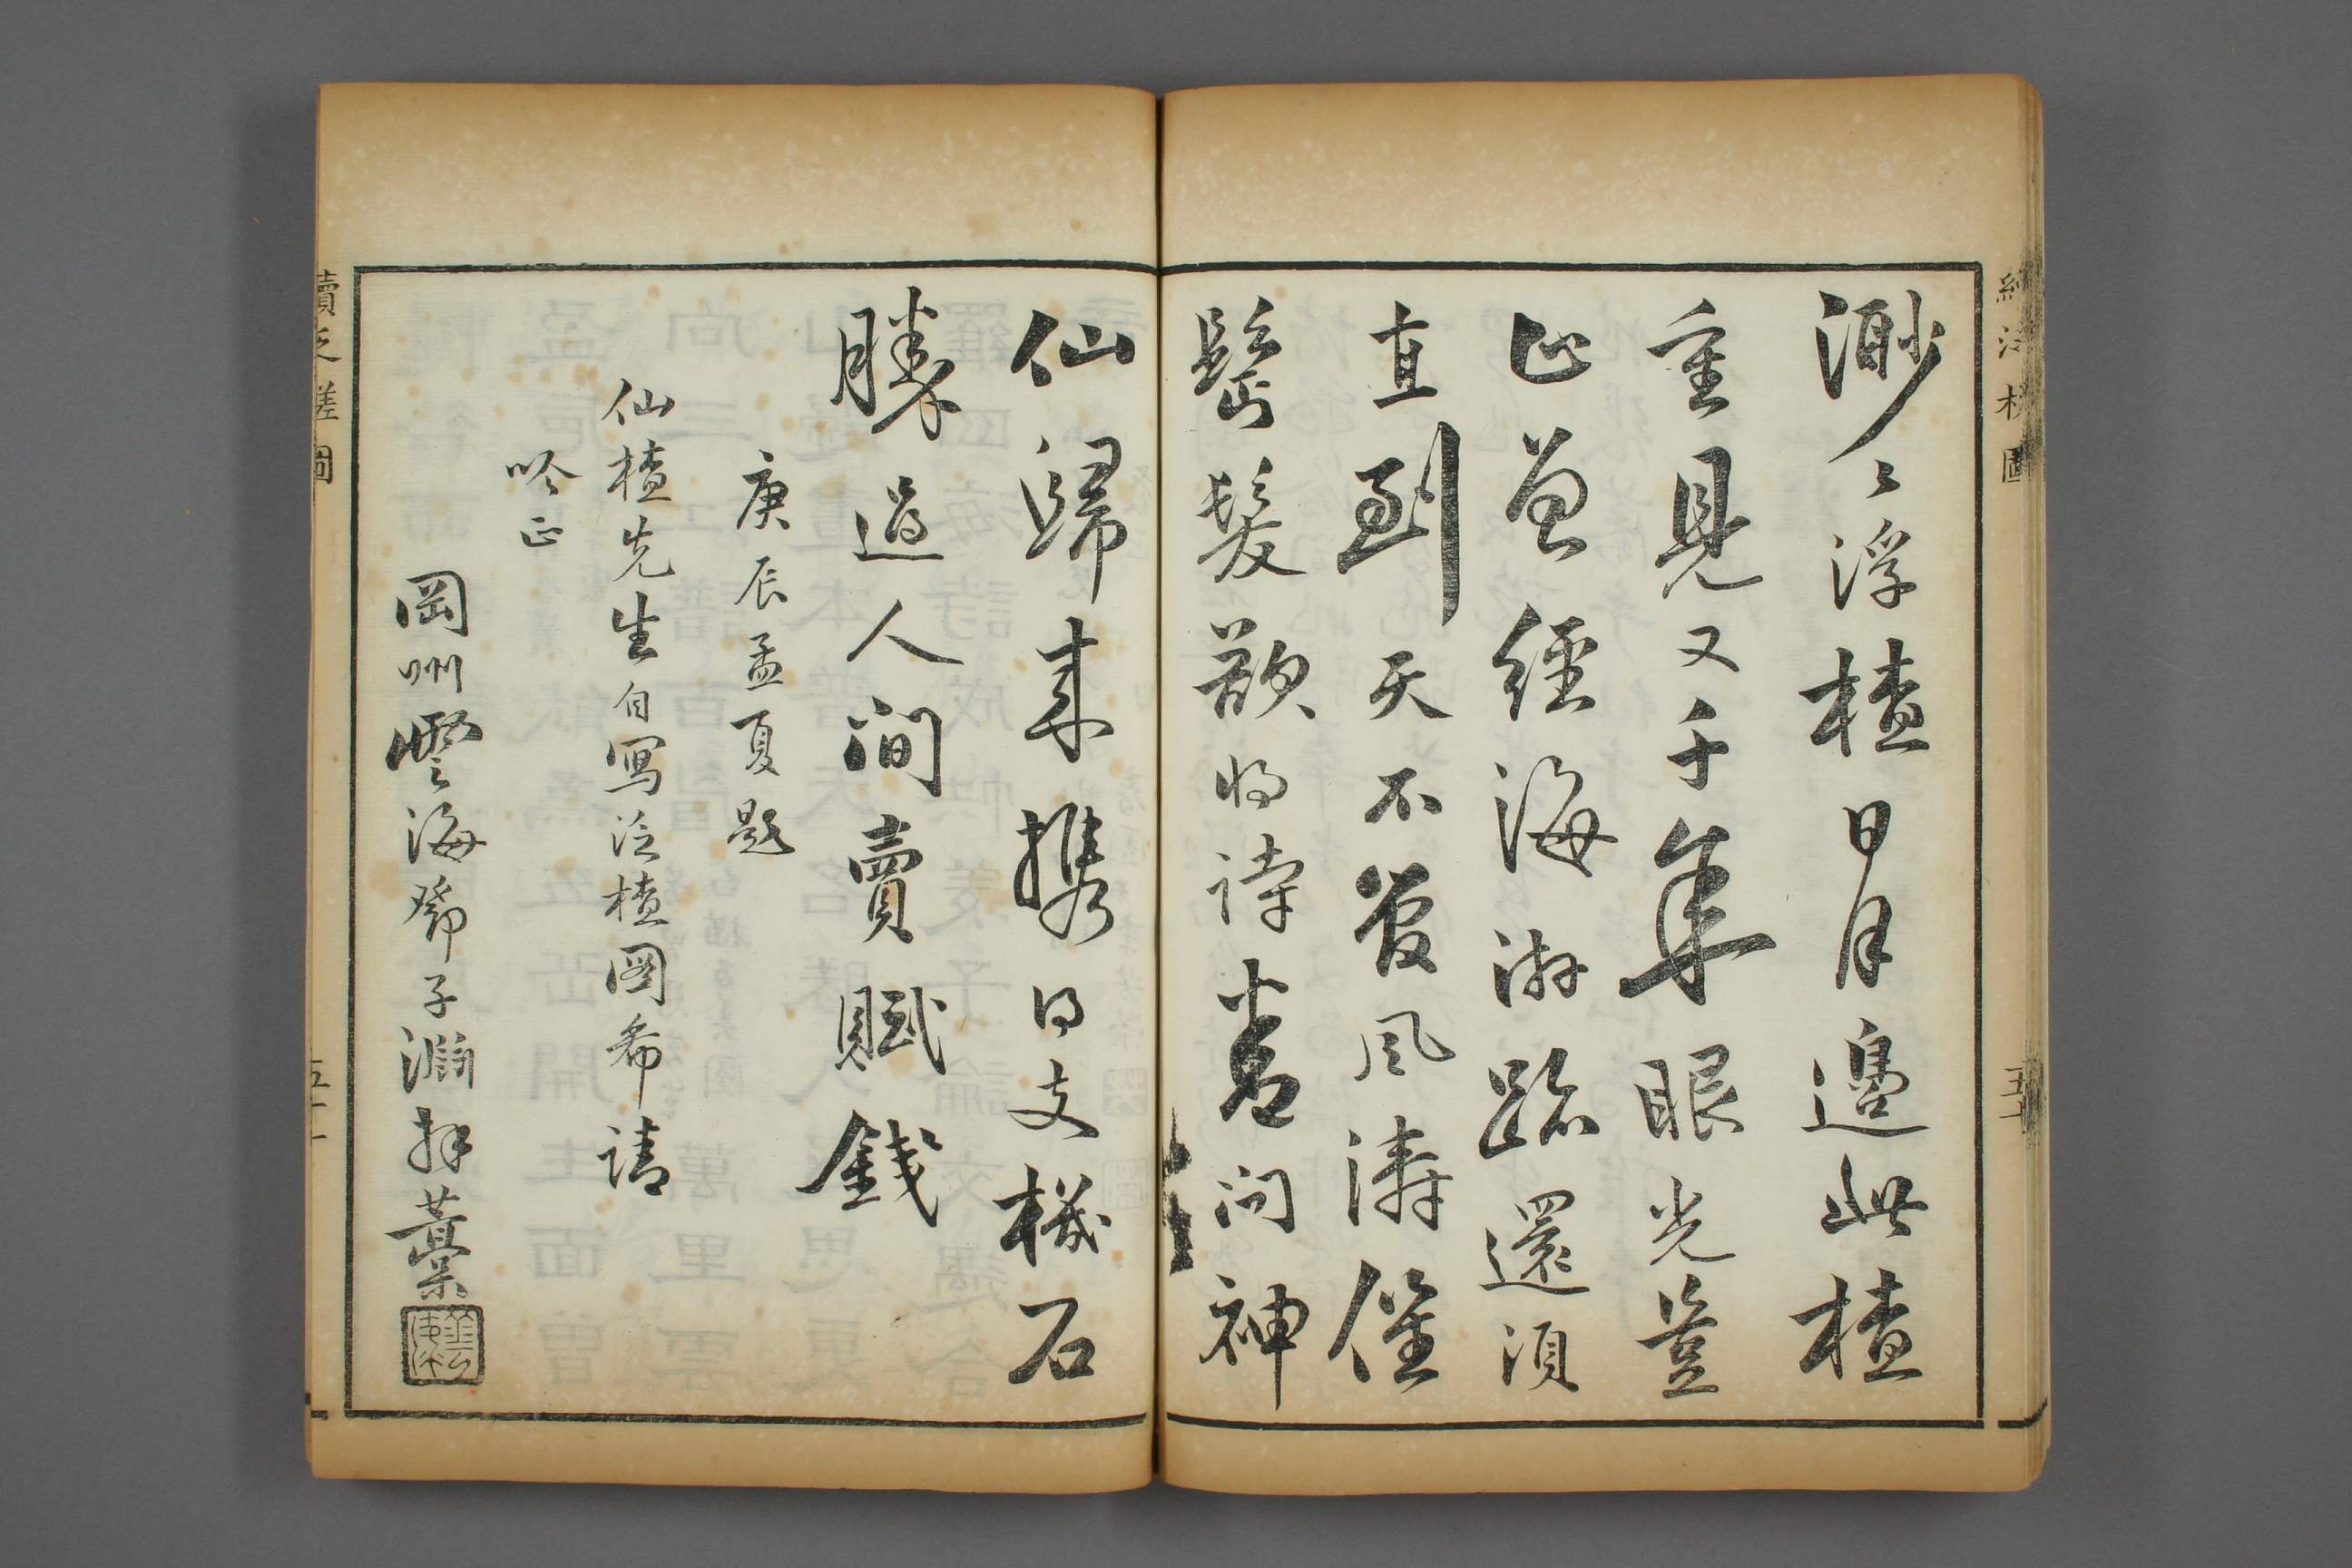 續泛槎圖
五十
渺〻浮楂日月邊此楂
重見又千年眼光豈
止曾經海游跡還須
直到天不管風濤催
鬢髮欲將詩畫問神
仙歸來携得支機石
勝過人間賣賦錢
庚辰孟夏題
仙楂先生自寫泛楂圖希請
吟正
岡州雲海鄧子淵拜藁
續泛槎圖
五十一